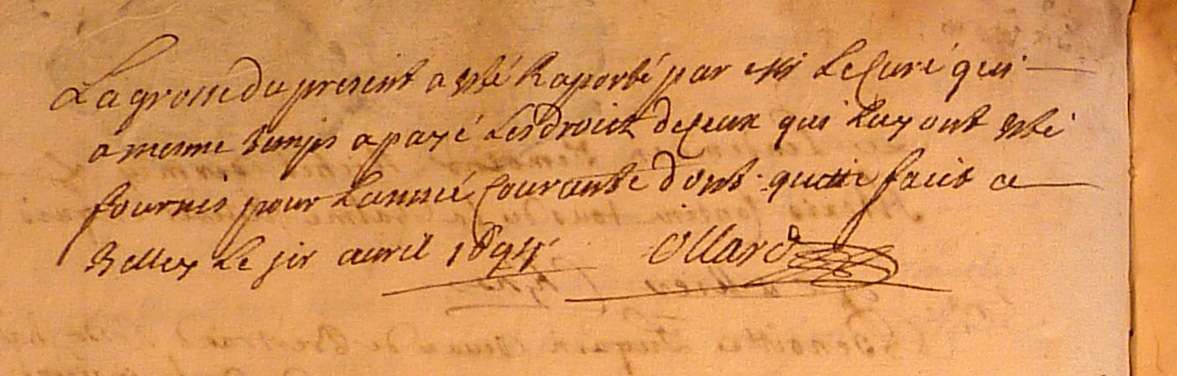 La grosse du present a esté Raporté par est Le Curé qui
a mesme temps a payé Les droict de ceux qui Luy ont esté
fournis pour Lanneé Courante dont quitté faict a
Belley Le jer avril 1694 Ollard